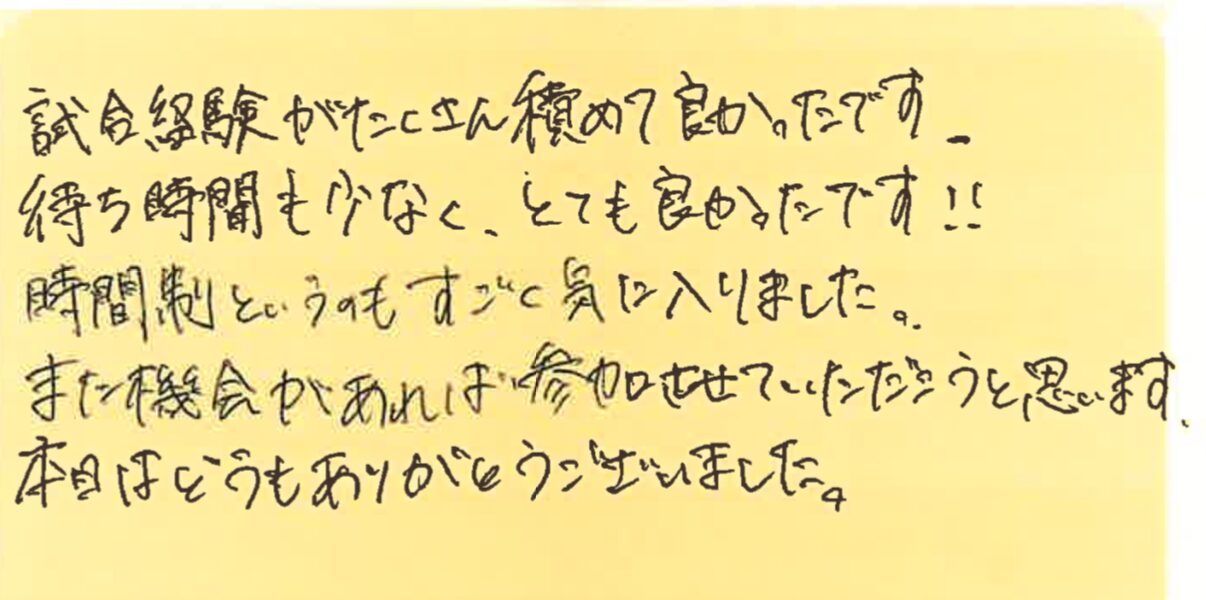 試合経験がたくさん積めて良かったです。
待ち時間も少なく、とても良かったです!!
時間制というのもすごく気に入りました。
また機会があれば参加させていただこうと思います。
本日はどうもありがとうございました。